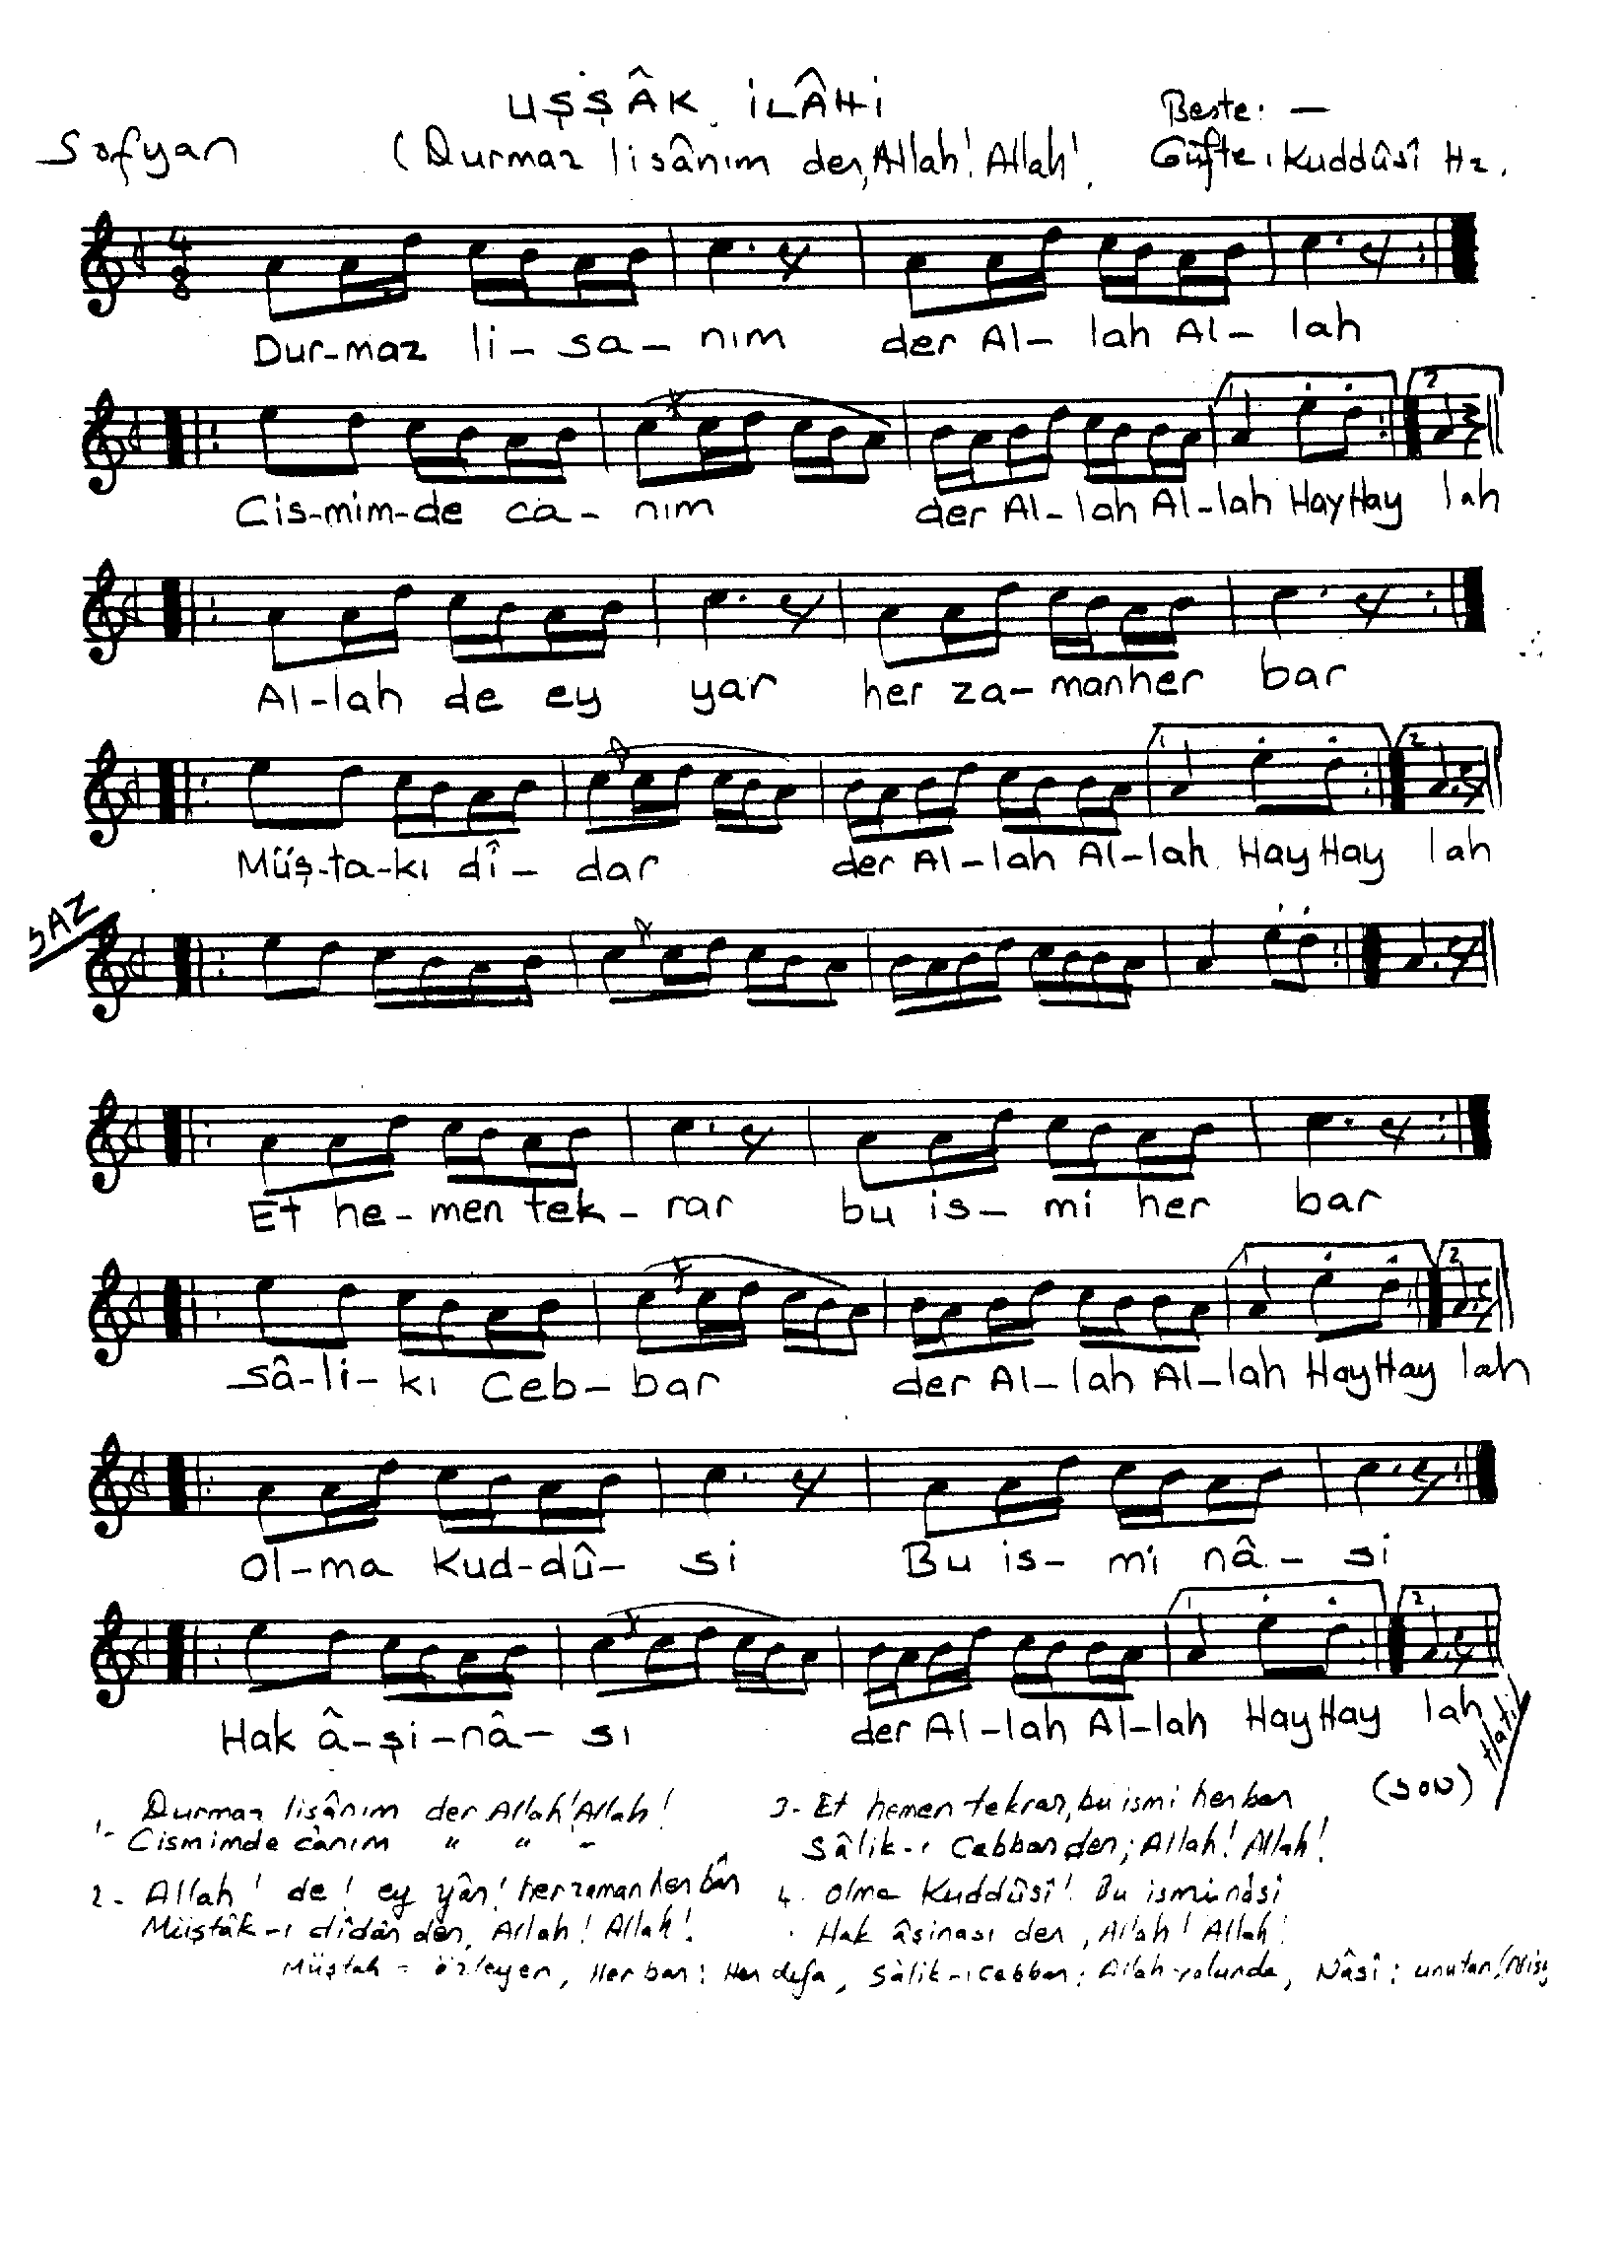 UŞŞÂK İLÂHİ
Beste: —
Sofyan
(Durmaz lisânım der, Allah! Allah!
Güfte: Kuddûsî Hz.
4
8
Dur-maz li-sa-nım der Al-lah Al-lah
1 2
Cis-mim-de ca-nım der Al-lah Al-lah Hay Hay lah
Al-lah de ey yar her za-man her bar
1 2
Müş-ta-kı dî-dar der Al-lah Al-lah Hay Hay lah
SAZ
Et he-men tek-rar bu is-mi her bar
1 2
sâ-li-kı Ceb-bar der Al-lah Al-lah Hay Hay lah
Ol-ma Kud-dû-si Bu is-mi nâ-si
1 2
Hak â-şi-nâ-sı der Al-lah Al-lah Hay Hay lah
Hatib
(SON)
1- Durmaz lisânım der Allah! Allah!
Cismimde cânım " " "
2- Allah! de! ey yâr! her zaman her bâr
Müştâk-ı dîdâr der, Allah! Allah!
3- Et hemen tekrar, bu ismi her bar
Sâlik-ı Cebbar der; Allah! Allah!
4. Olma Kuddûsî! Bu ismi nâsi
Hak âşinası der, Allah! Allah!
Müştak = özleyen, Her bar: Her defa, Sâlik-ı Cebbar: Allah yolunda, Nâsî: unutan,